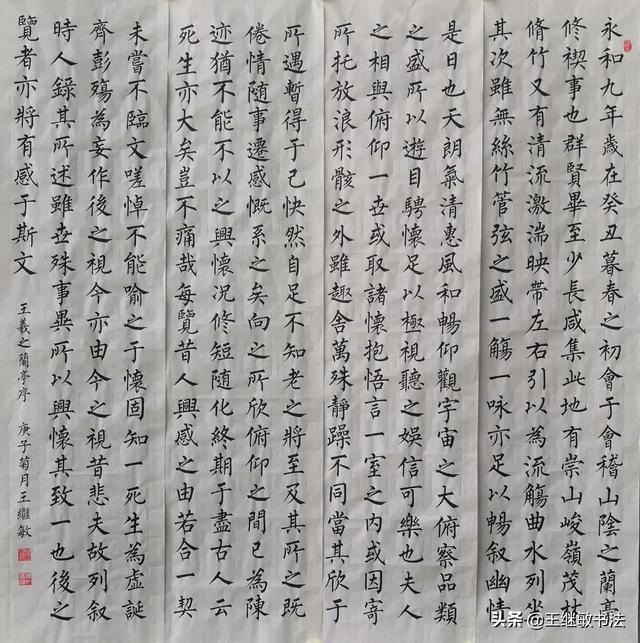 永和九年歲在癸丑暮春之初會于會稽山陰之蘭亭
修禊事也群賢畢至少長咸集此地有崇山峻嶺茂林
脩竹又有清流激湍映帶左右引以為流觴曲水列坐
其次雖無絲竹管弦之盛一觴一咏亦足以暢叙幽情
是日也天朗氣清惠風和暢仰觀宇宙之大俯察品類
之盛所以遊目騁懷足以極視聽之娛信可樂也夫人
之相與俯仰一世或取諸懷抱悟言一室之內或因寄
所托放浪形骸之外雖趣舍萬殊靜躁不同當其欣于
所遇暫得于己快然自足不知老之將至及其所之既
倦情随事遷感慨系之矣向之所欣俯仰之間已為陳
迹猶不能不以之興懷況修短随化終期于盡古人云
死生亦大矣豈不痛哉每覽昔人興感之由若合一契
未嘗不臨文嗟悼不能喻之于懷固知一死生為虛誕
齊彭殤為妄作後之視今亦由今之視昔悲夫故列叙
時人錄其所述雖世殊事異所以興懷其致一也後之
覽者亦將有感于斯文
王羲之蘭亭序 庚子菊月王繼敏
头条 @王继敏书法